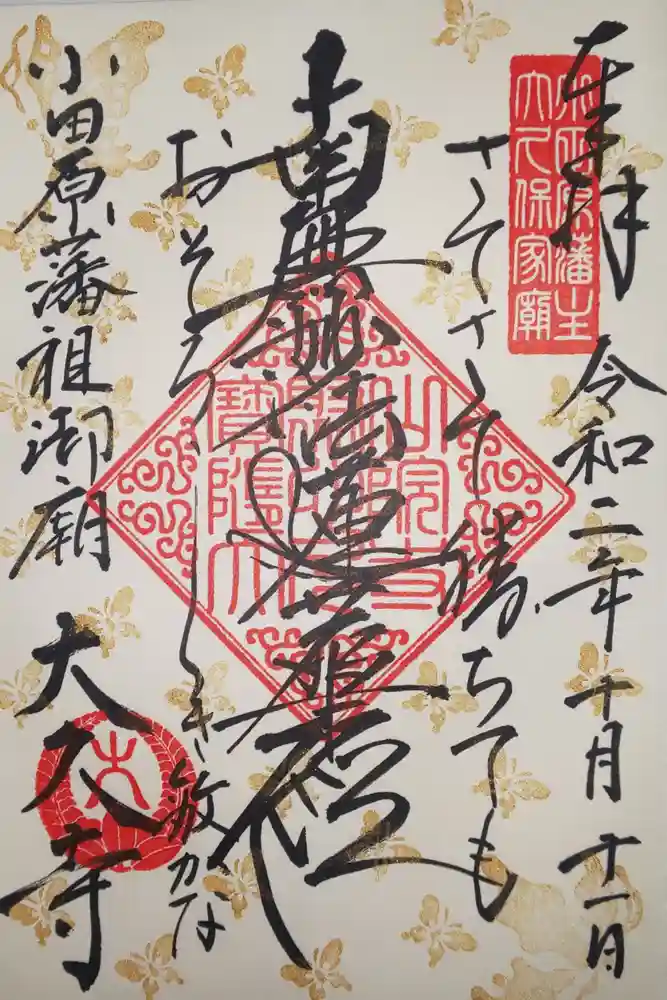 奉拝 令和二年十月十一日
小田原藩主
大久保家廟
さてさて勝ちても
南無妙法蓮華経
おそろしき敵かな
小田原藩祖御廟 大久寺